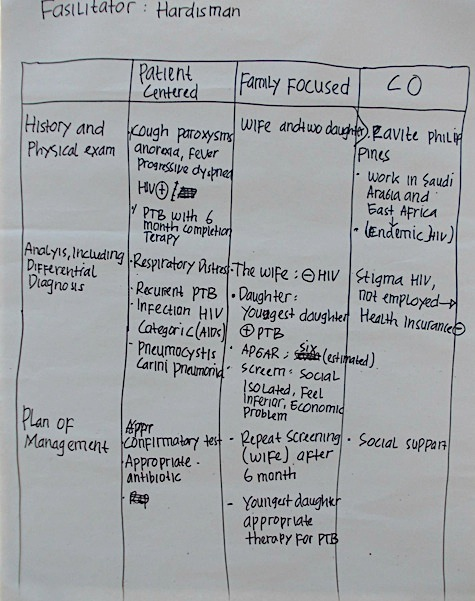 Fasilitator : Hardisman
Patient Centered
Family Focused
CO
History and
Physical exam
Cough paroxysms
anorexia, fever
progressive dyspnea
HIV ⊕
PTB with 6
month completion
Terapy
Wife and two daughter
Cavite Philip
Pines
· Work in Saudi
Arabia and
East Africa
↓
· (Endemic HIV)
Analysis, Including
Differential
Diagnosis
· Respiratory Distres
· Recurent PTB
· Infection HIV
Categoric (AIDS)
· Pneumocystis
Carini pneumonia
· The wife : ⊖ HIV
· Daughter :
Youngest daughter
⊕ PTB
· APGAR : six (estimated)
· Screem : Social
Isolated, Feel
Inferior, Economic
Problem
Stigma HIV,
not employed →
Health Insurance ⊖
Plan of
Management
Appr
Confirmatory test
· Appropriate
antibiotic
- Repeat Screening
(Wife) after
6 month
- Youngest daughter
appropriate
therapy for PTB
· Social support